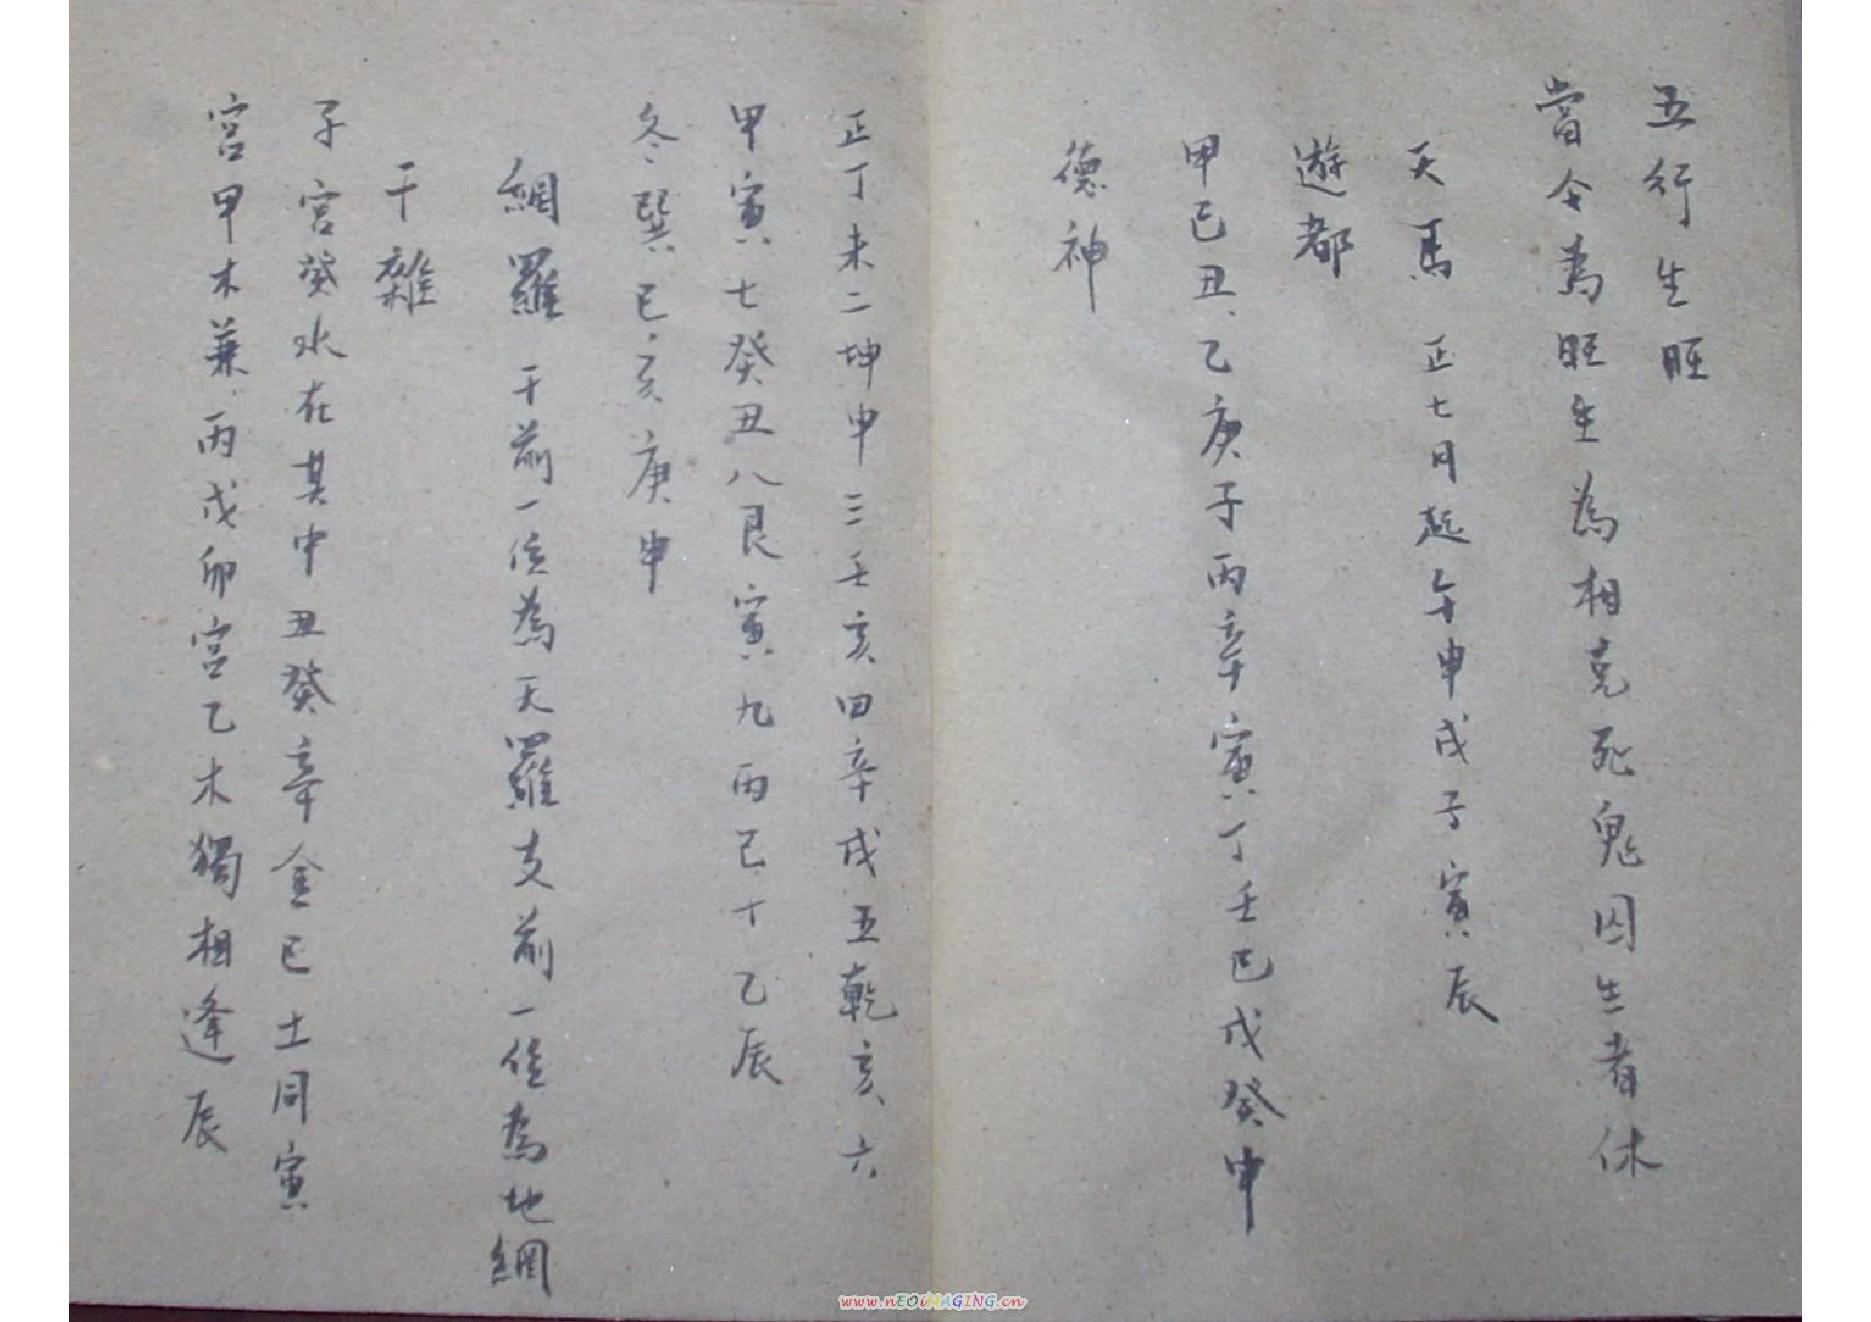 五行生旺
當令為旺生為相克死鬼囚生者休
天馬 正七月起午申戌子寅辰
遊都
甲己丑乙庚子丙辛寅丁壬巳戊癸申
德神
正丁未二坤申三壬亥四辛戌五乾亥六
甲寅七癸丑八艮寅九丙己十乙辰
冬巽巳亥庚申
網羅 干前一位為天羅支前一位為地網
干雜
子宮癸水在其中丑癸辛金己土同寅
宮甲木兼丙戊卯宮乙木獨相逢辰
www.nEOiMAGING.cn